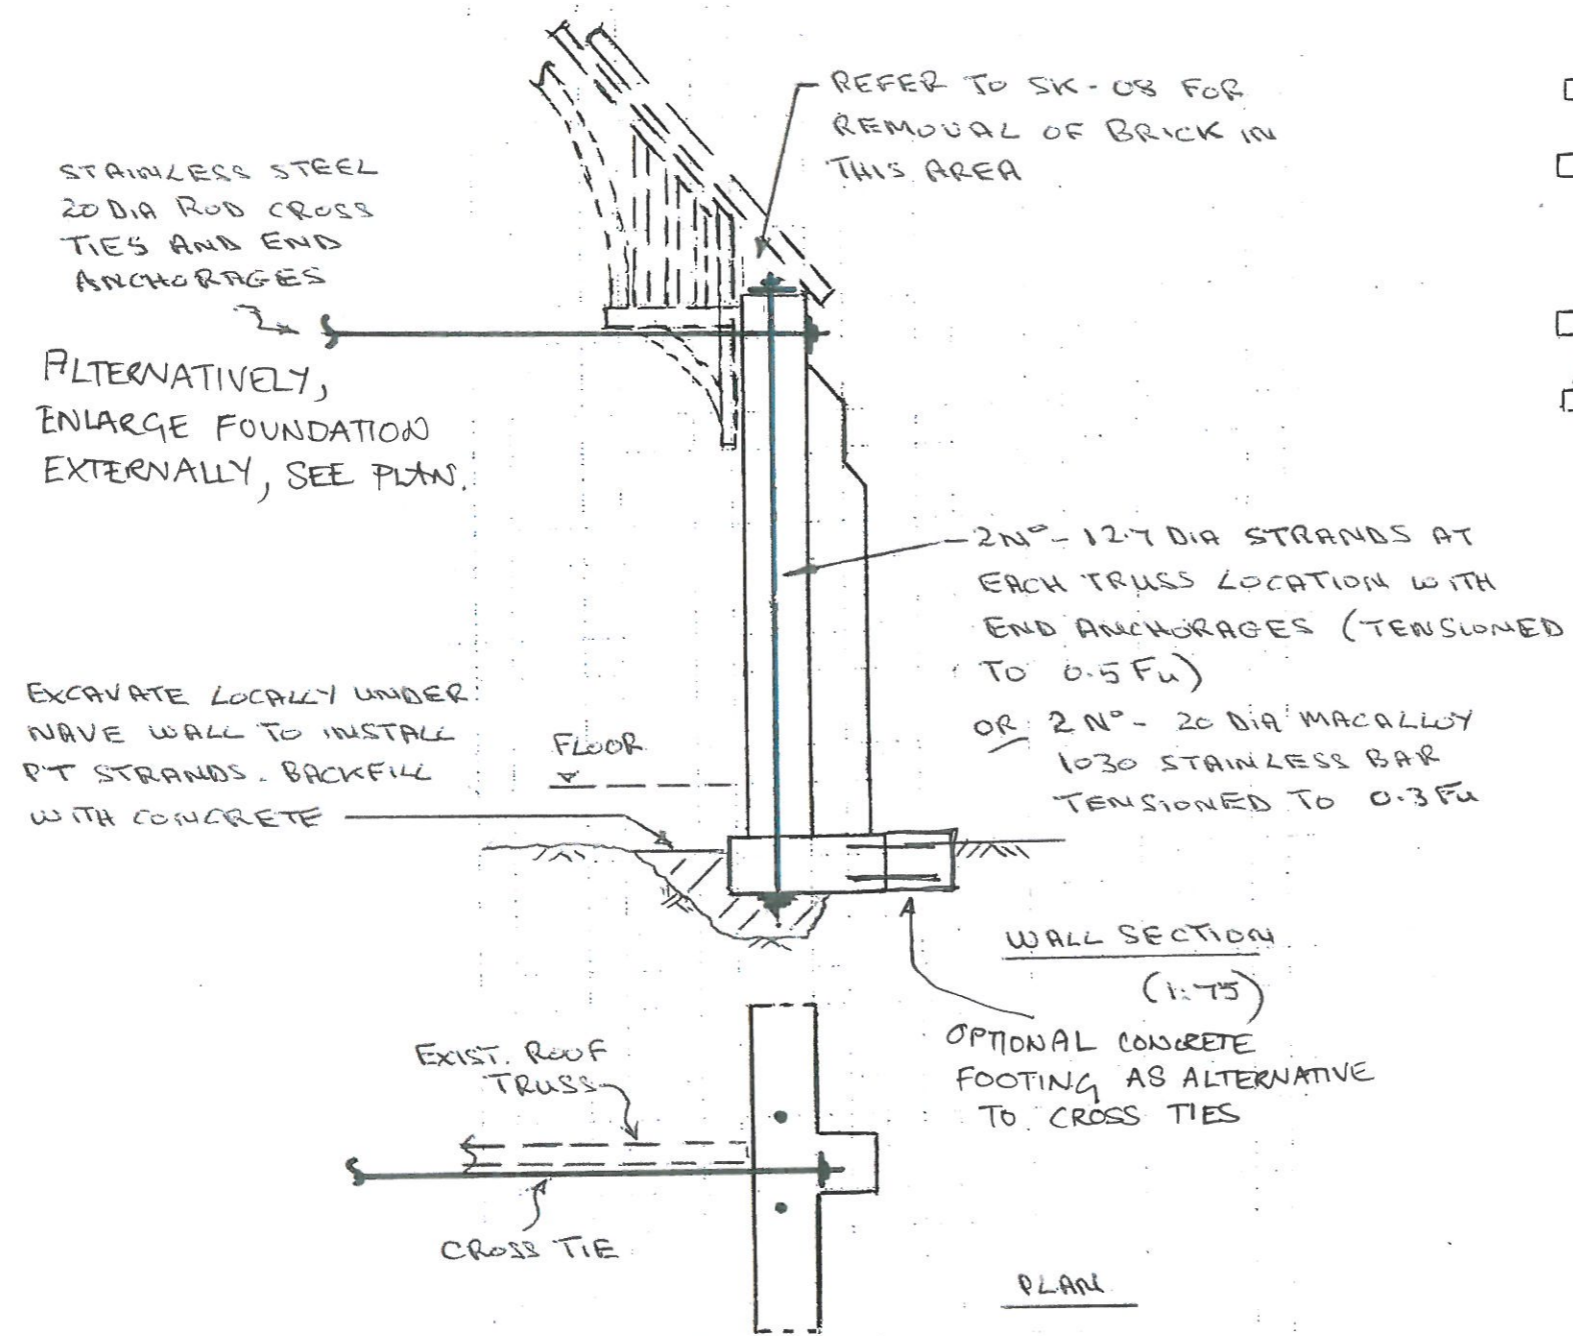 REFER TO SK-08 FOR
REMOVAL OF BRICK IN
THIS AREA
STAINLESS STEEL
20 DIA ROD CROSS
TIES AND END
ANCHORAGES
ALTERNATIVELY,
ENLARGE FOUNDATION
EXTERNALLY, SEE PLAN.
2Nº - 12.7 DIA STRANDS AT
EACH TRUSS LOCATION WITH
END ANCHORAGES (TENSIONED
TO 0.5 Fu)
OR 2 Nº - 20 DIA MACALLOY
1030 STAINLESS BAR
TENSIONED TO 0.3 Fu
EXCAVATE LOCALLY UNDER
NAVE WALL TO INSTALL
PT STRANDS. BACKFILL
WITH CONCRETE
FLOOR
WALL SECTION
(1:75)
OPTIONAL CONCRETE
FOOTING AS ALTERNATIVE
TO CROSS TIES
EXIST. ROOF
TRUSS
CROSS TIE
PLAN